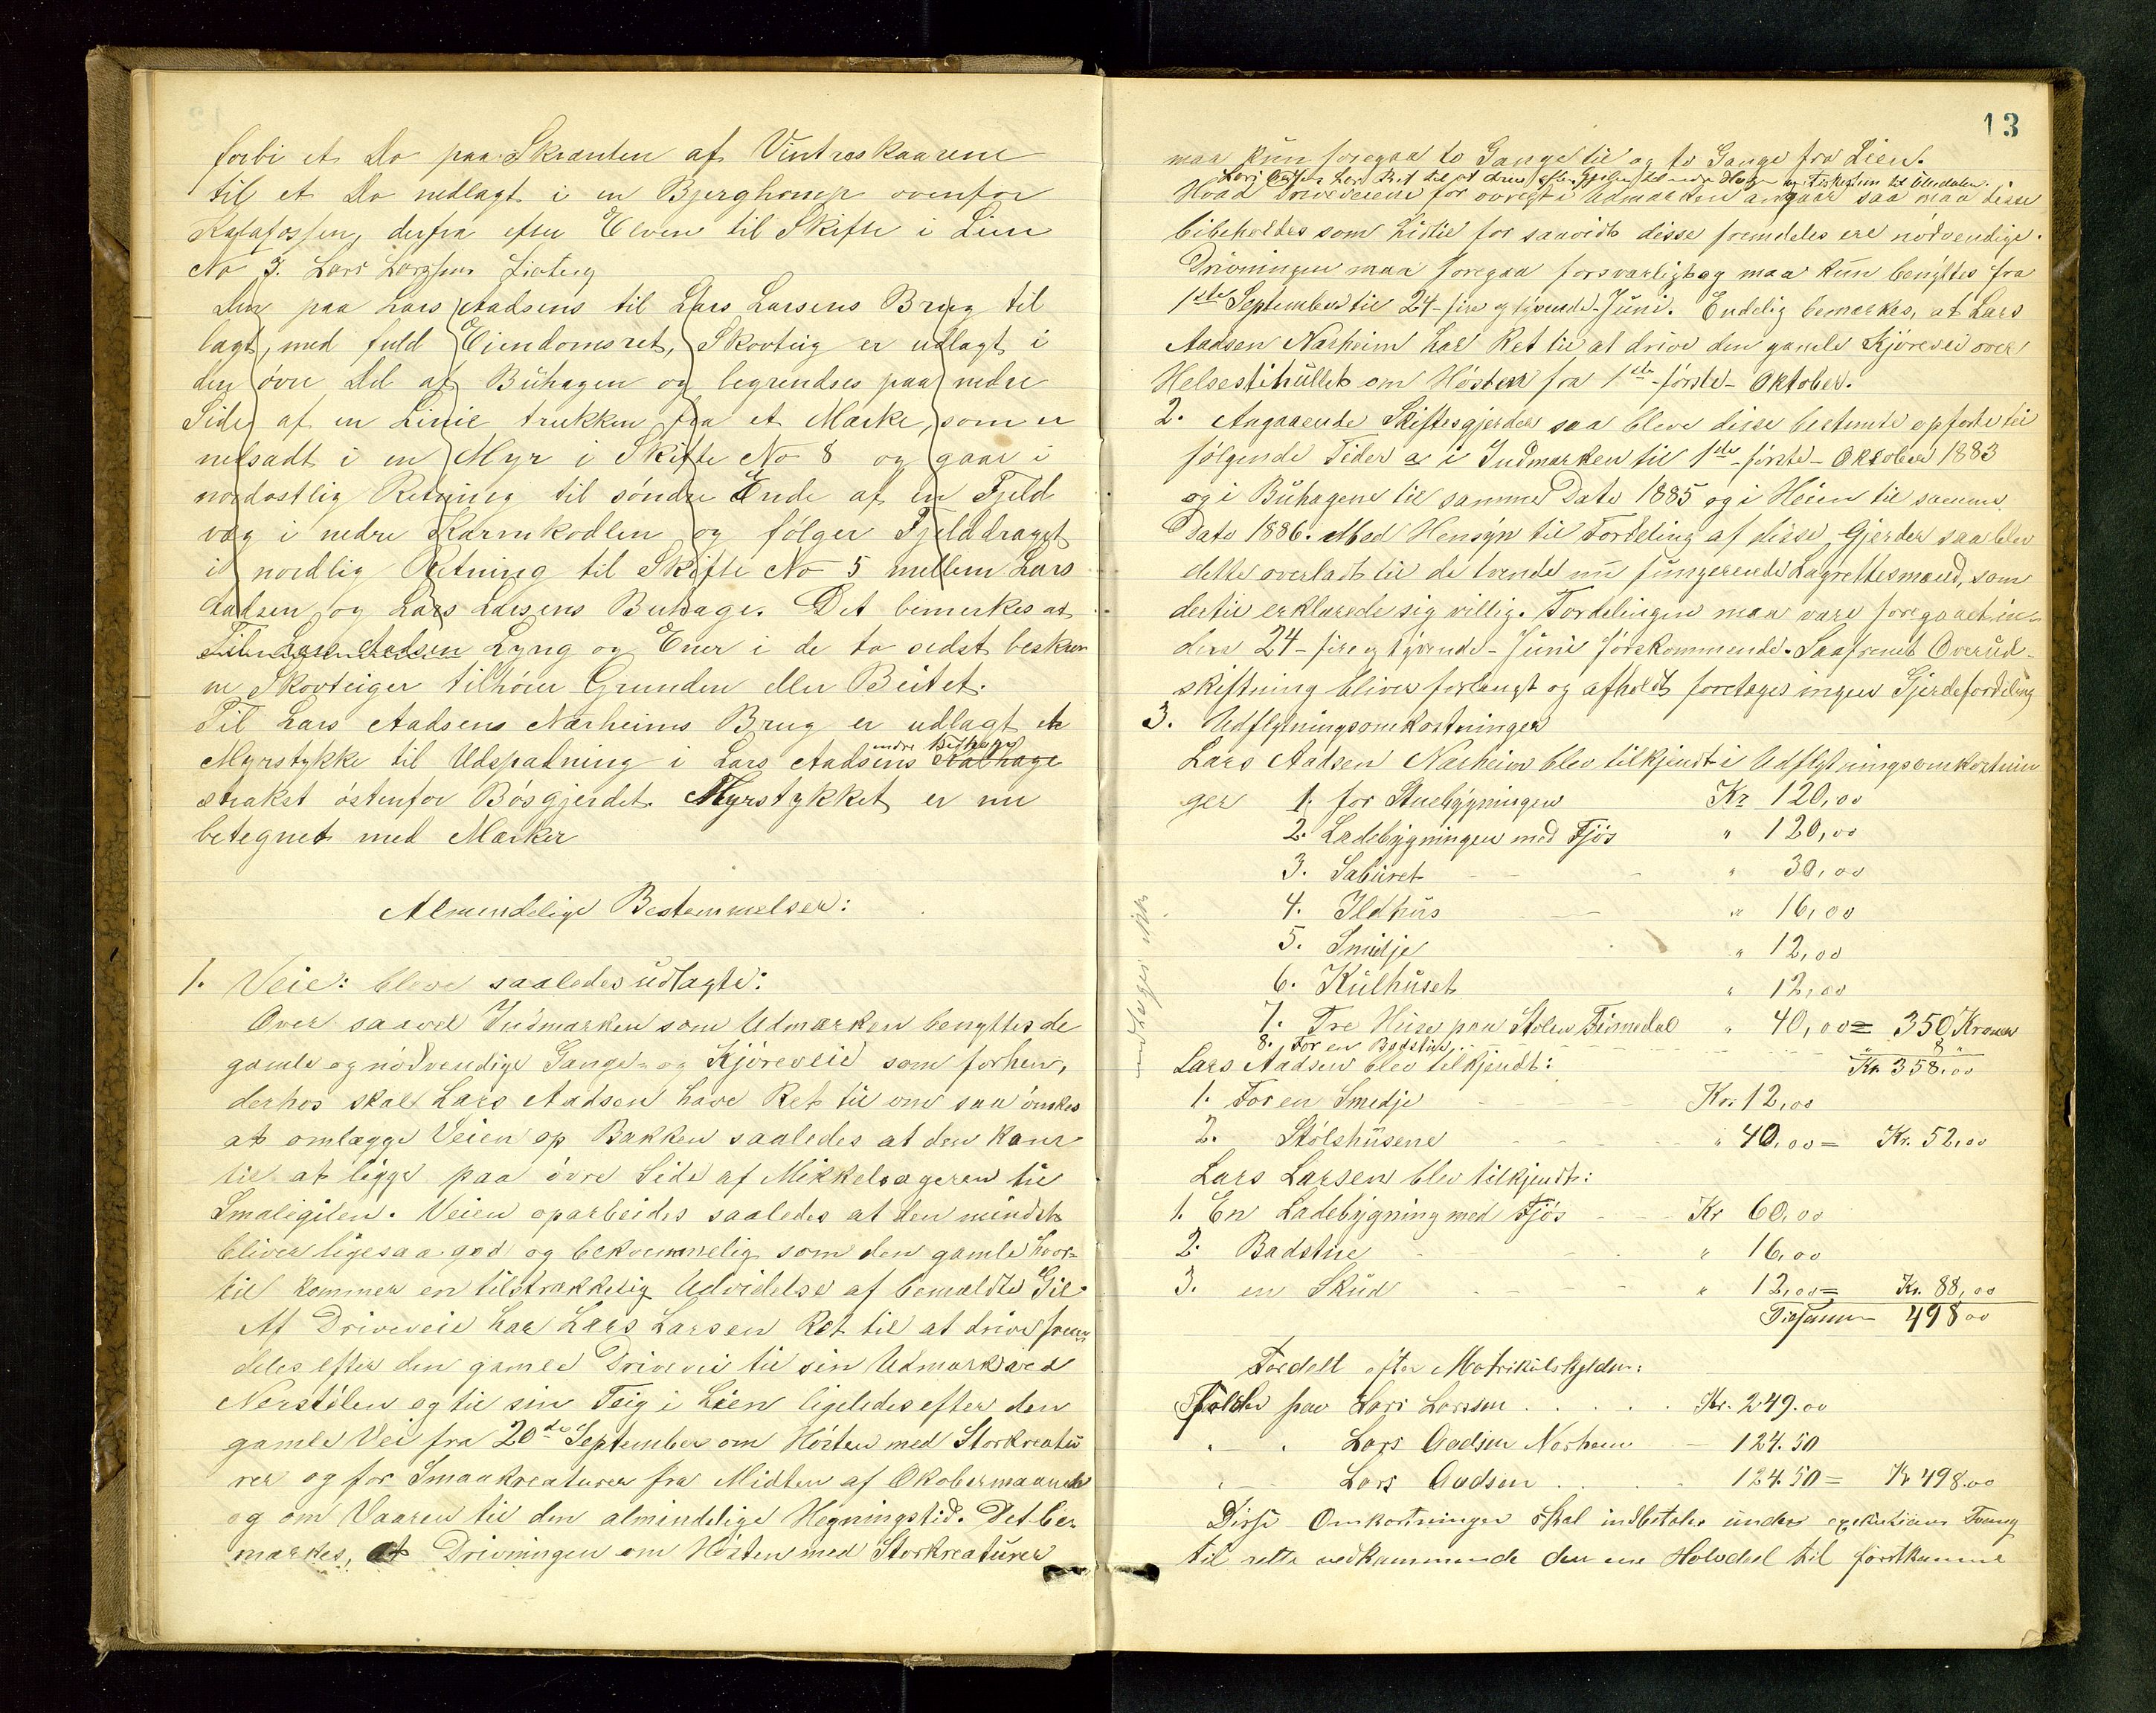 forbi et Do paa Skranten af Vintreskaarene
til et Do nedlagt i en Bjerghomp ovenfor
derfra efter Elven til Skifte i Lien
No 3. Lars Larssens
Den paa Lars Aadsens til Lars Larsens Brug til
lagt, med fuld Eiendomsret, Skovteig er udlagt i
den øvre Del af Buhagen og begrendses paa nedre
Side af en Linie trukken fra et Marke, som er
nedsadt i en Myr i Skifte No 8 og gaar i
nordostlig Retning til søndre Ende af en Fjeld
væg i nedre Karmkodlen og følger Fjelddraget
i nordlig Retning til Skifte No 5 mellem Lars
Aadsen og Lars Larsens Buhage. Det bemerkes at
Til Lars Aadsen Lyng og Ener i de to sidst beskrev
ne Skovteiger tilhører Grunden eller Beitet.
Til Lars Aadsens Narheims Brug er udlagt et
nedre Buhage
Myrstykke til Udspadning i Lars Aadsens
strakst østenfor Bøsgjerdet. Myrstykket er nu
betegnet med Marker
Almindelige Bestemmelser:
1. Veie: bleve saaledes udlagte:
Over saavel Indmarken som Udmarken benyttes de
gamle og nødvendige Gange- og Kjøreveie som forhen,
derhos skal Lars Aadsen have Ret til om saa ønskes
at omlægge Veien op Bakken saaledes at den kom
til at ligge paa øvre Side af Mikkelsageren til
Smalegilen. Veien oparbeides saaledes at den mindst
bliver ligesaa god og bekvemmelig som den gamle hvor-
til kommer en tilstrækkelig Udvidelse af bemældte Gil
Af Driveveie har Lars Larsen Ret til at drive frem
deles efter den gamle Drivevei til sin Udmark ved
Nerstølen og til sin Teig i Lien ligeledes efter den
gamle Vei fra 20de September om Høsten med Storkreatu
rer og for Smaakreaturer fra Midten af Okobermaaned
og om Vaaren til den almindelige Hegningstid. Det be-
mærkes, at Drivningen om Høsten med Storkreaturer
13
maa kun foregaa to Gange til og to Gange fra Lien.
Lars Aadsen har Ret til at drive efter
Hvad Driveveiene for øvrigt i Udmarken angaar saa maa disse
bibeholdes som hidtil for saavidt disse fremdeles ere nødvendige.
Drivningen maa foregaa forsvarligt og maa kun benyttes fra
1ste September til 24-fire og tyvende-Juni. Endelig bemærkes, at Lars
Aadsen Narheim har Ret til at drive den gamle Kjørevei over
Helsestihullet om Høsten fra 1ste-første-Oktober.
2. Angaaende Skiftesgjerder saa bleve disse bestemte opførte til
følgende Tider a i Indmarken til 1ste-første-Oktober 1883
og i Buhagene til samme Dato 1885 og i Heien til samme
Dato 1886. Med Hensyn til Fordeling af disse Gjerder saa blev
dette overladt til de tvende nu fungerende Lagrettesmænd, som
dertil erklærede sig villig. Fordelingen maa være foregaaet in-
dens 24-fire og tyvende-Juni førskommende. Saafremt Overud-
skiftning bliver forlangt og afholdt foretages ingen Gjerdefordeling
3. Udflytningsomkostninger
Lars Aadsen Narheim blev tilkjendt i Udflytningsomkostnin
ger 1. for Stuebygningen Kr 120,00
2. Ladebygningen med Fjøs " 120,00
3. Saburet " 30,00
4. Ildhus " 16,00
5. Smidje " 12,00
6. Kulhuset " 12,00
7. Tre Huse paa Stølen Fivnedal " 40,00 = 350 Kroner
8. For en Badstue " 8 "
Lars Aadsen blev tilkjendt: Kr 358.00
1. For en Smedje Kr. 12,00
2. Stølshusene " 40,00 = Kr. 52,00
Lars Larsen blev tilkjendt:
1. En Ladebygning med Fjøs Kr 60,00
2. Badstue " 16,00
3. en Skud " 12,00 = Kr. 88,00
Tilsammen 498 00
Fordelt efter Matrikulskylden:
Falder paa Lars Larssen Kr. 249.00
" " Lars Aadsen Norheim 124.50
" Lars Aadsen 124.50 = Kr 498.00
Disse Omkostninger skal indbetales under Tvang
til rette vedkommende den ene Halvdel til førstkomme